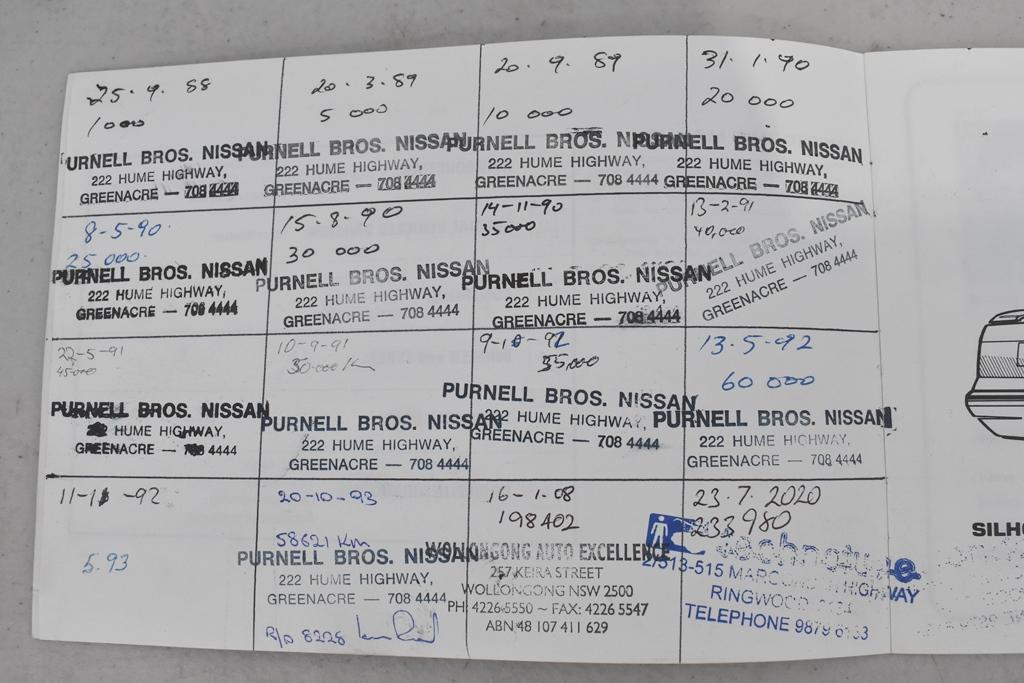 25.9.88
1000
PURNELL BROS. NISSAN
222 HUME HIGHWAY,
GREENACRE — 708 4444
20.3.89
5 000
PURNELL BROS. NISSAN
222 HUME HIGHWAY,
GREENACRE — 708 4444
20.9.89
10 000
PURNELL BROS. NISSAN
222 HUME HIGHWAY,
GREENACRE — 708 4444
31.1.90
20 000
PURNELL BROS. NISSAN
222 HUME HIGHWAY,
GREENACRE — 708 4444
8-5-90.
25 000.
PURNELL BROS. NISSAN
222 HUME HIGHWAY,
GREENACRE — 708 4444
15.8.90
30 000
PURNELL BROS. NISSAN
222 HUME HIGHWAY,
GREENACRE — 708 4444
14-11-90
35000
PURNELL BROS. NISSAN
222 HUME HIGHWAY,
GREENACRE — 708 4444
13-2-91
40,000
PURNELL BROS. NISSAN
222 HUME HIGHWAY,
GREENACRE — 708 4444
22-5-91
45000
PURNELL BROS. NISSAN
HUME HIGHWAY,
GREENACRE — 4444
10-9-91
50.000 Km
PURNELL BROS. NISSAN
222 HUME HIGHWAY,
GREENACRE — 708 4444
55,000
PURNELL BROS. NISSAN
222 HUME HIGHWAY,
GREENACRE — 708 4444
13.5.92
60 000
PURNELL BROS. NISSAN
222 HUME HIGHWAY,
GREENACRE — 708 4444
11-11-92
5.93
20-10-93
58621 Km
PURNELL BROS. NISSAN
222 HUME HIGHWAY,
GREENACRE — 708 4444
R/O 8228
16-1-08
198402
WOLLONGONG AUTO EXCELLENCE
257 KEIRA STREET
WOLLONGONG NSW 2500
PH: 4226 5550 ~ FAX: 4226 5547
ABN 48 107 411 629
23.7.2020
233980
technotune
2/513-515 MAROONDAH HIGHWAY
RINGWOOD 3134
TELEPHONE 9879
SILHO